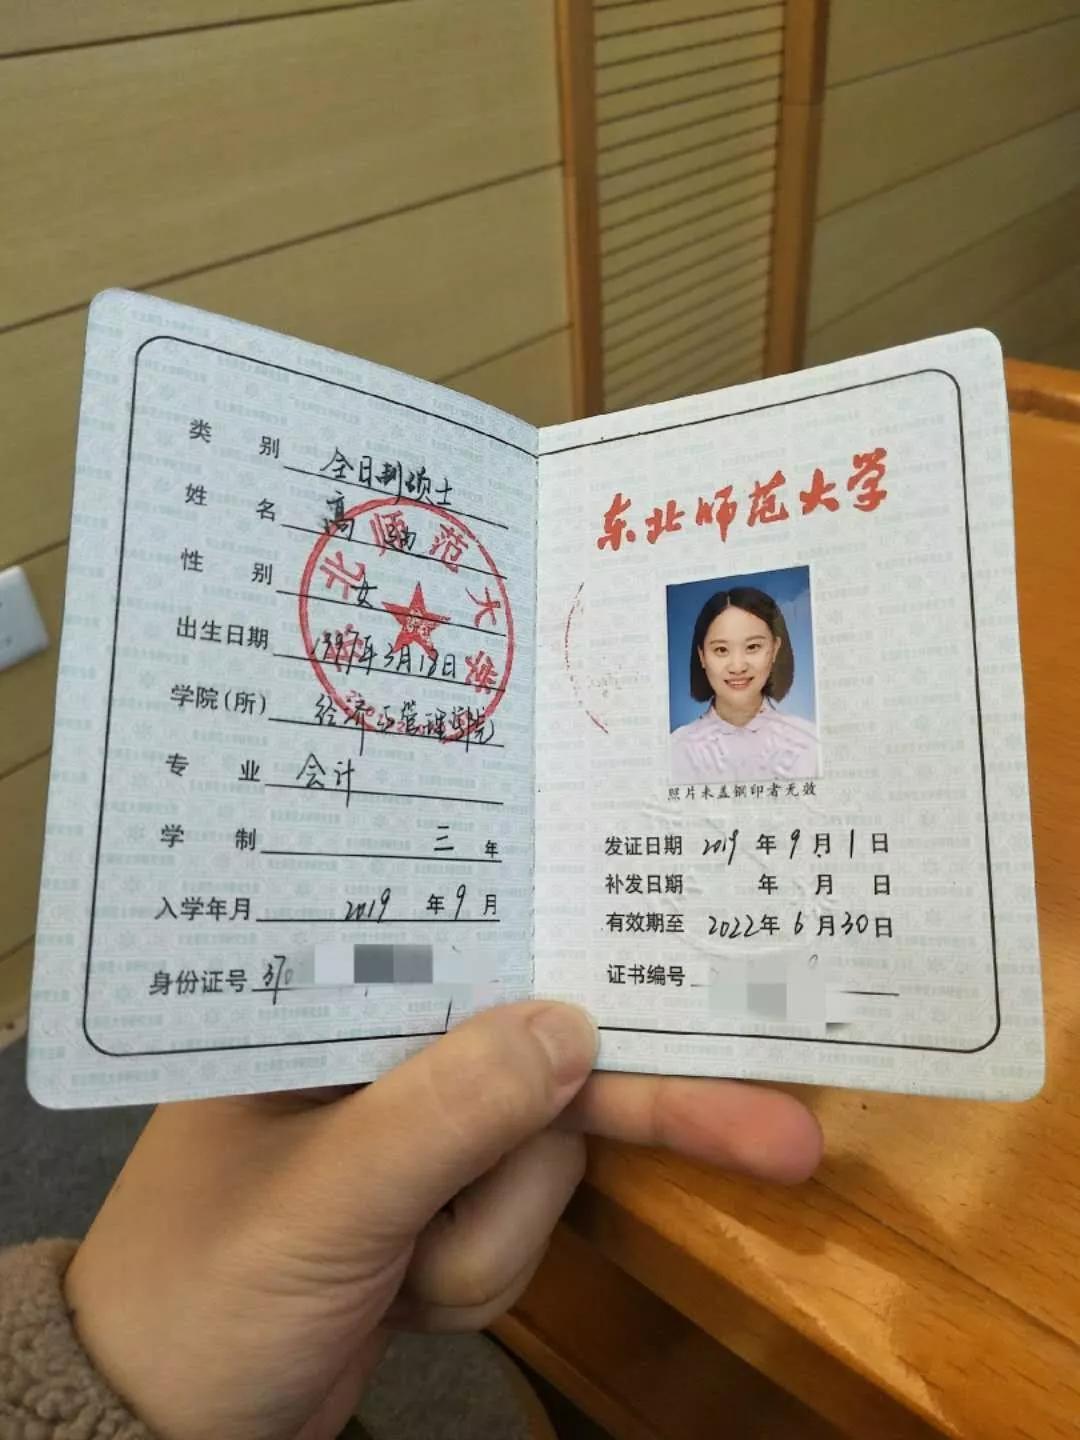 类 别 全日制硕士
姓 名 高
性 别 女
出生日期 1997年3月18日
学院(所) 经济与管理学院
专 业 会计
学 制 三 年
入学年月 2019 年 9 月
身份证号 370
东北师范大学
东北师范大学
照片未盖钢印者无效
发证日期 2019 年 9 月 1 日
补发日期 年 月 日
有效期至 2022年 6 月30日
证书编号